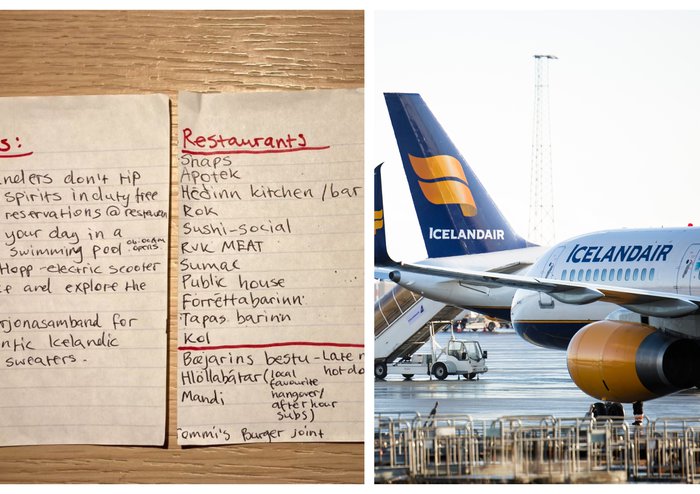 s:
nders don't tip
spirits in duty free
reservations @ restauran
your day in a
swimming pool opens
Hopp-electric scooter
and explore the
rjonasamband for
ntic Icelandic
sweaters.
Restaurants
Snaps
Apotek
Héðinn kitchen/bar
Rok
Sushi-social
RVK MEAT
Sumac
Public house
Forréttabarinn
Tapas barinn
Kol
Bæjarins bestu - Late n
hot do
Hlöllabátar (local
favourite
hangover/
after hour
subs)
Mandi
Tommi's Burger joint
ICELANDAIR
ICELANDAIR